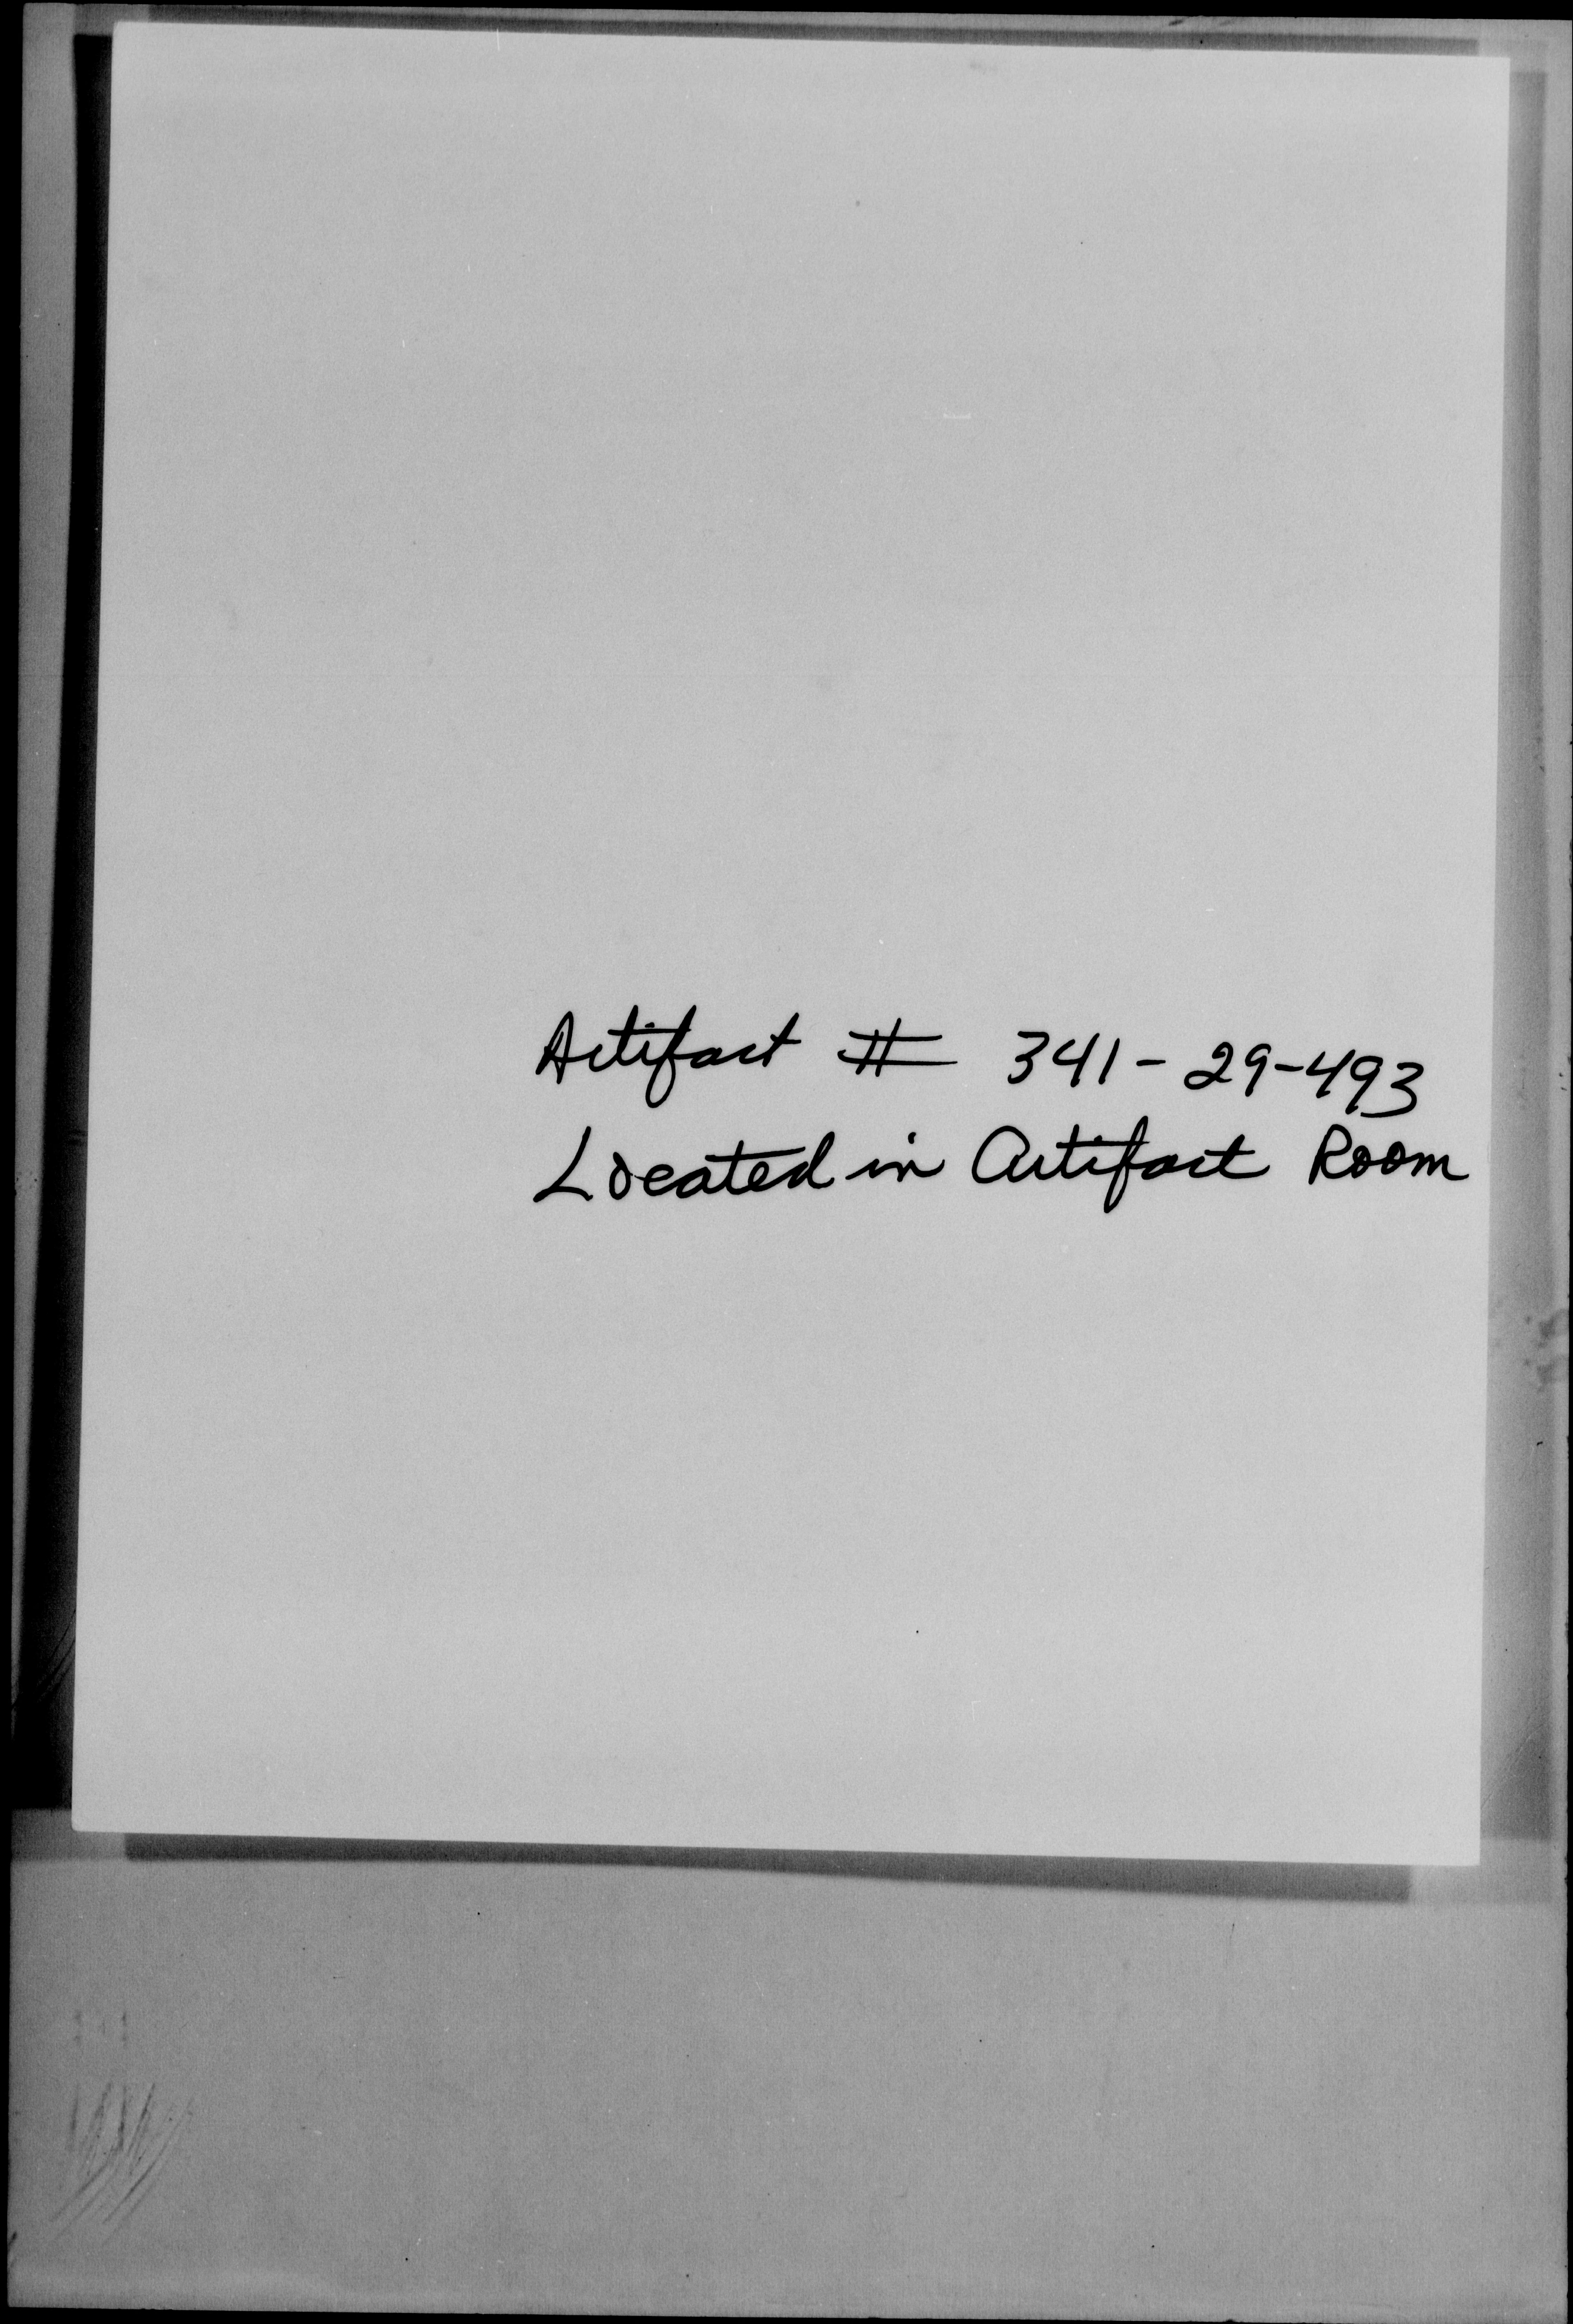 Artifact # 341-29-493
Located in Artifact Room